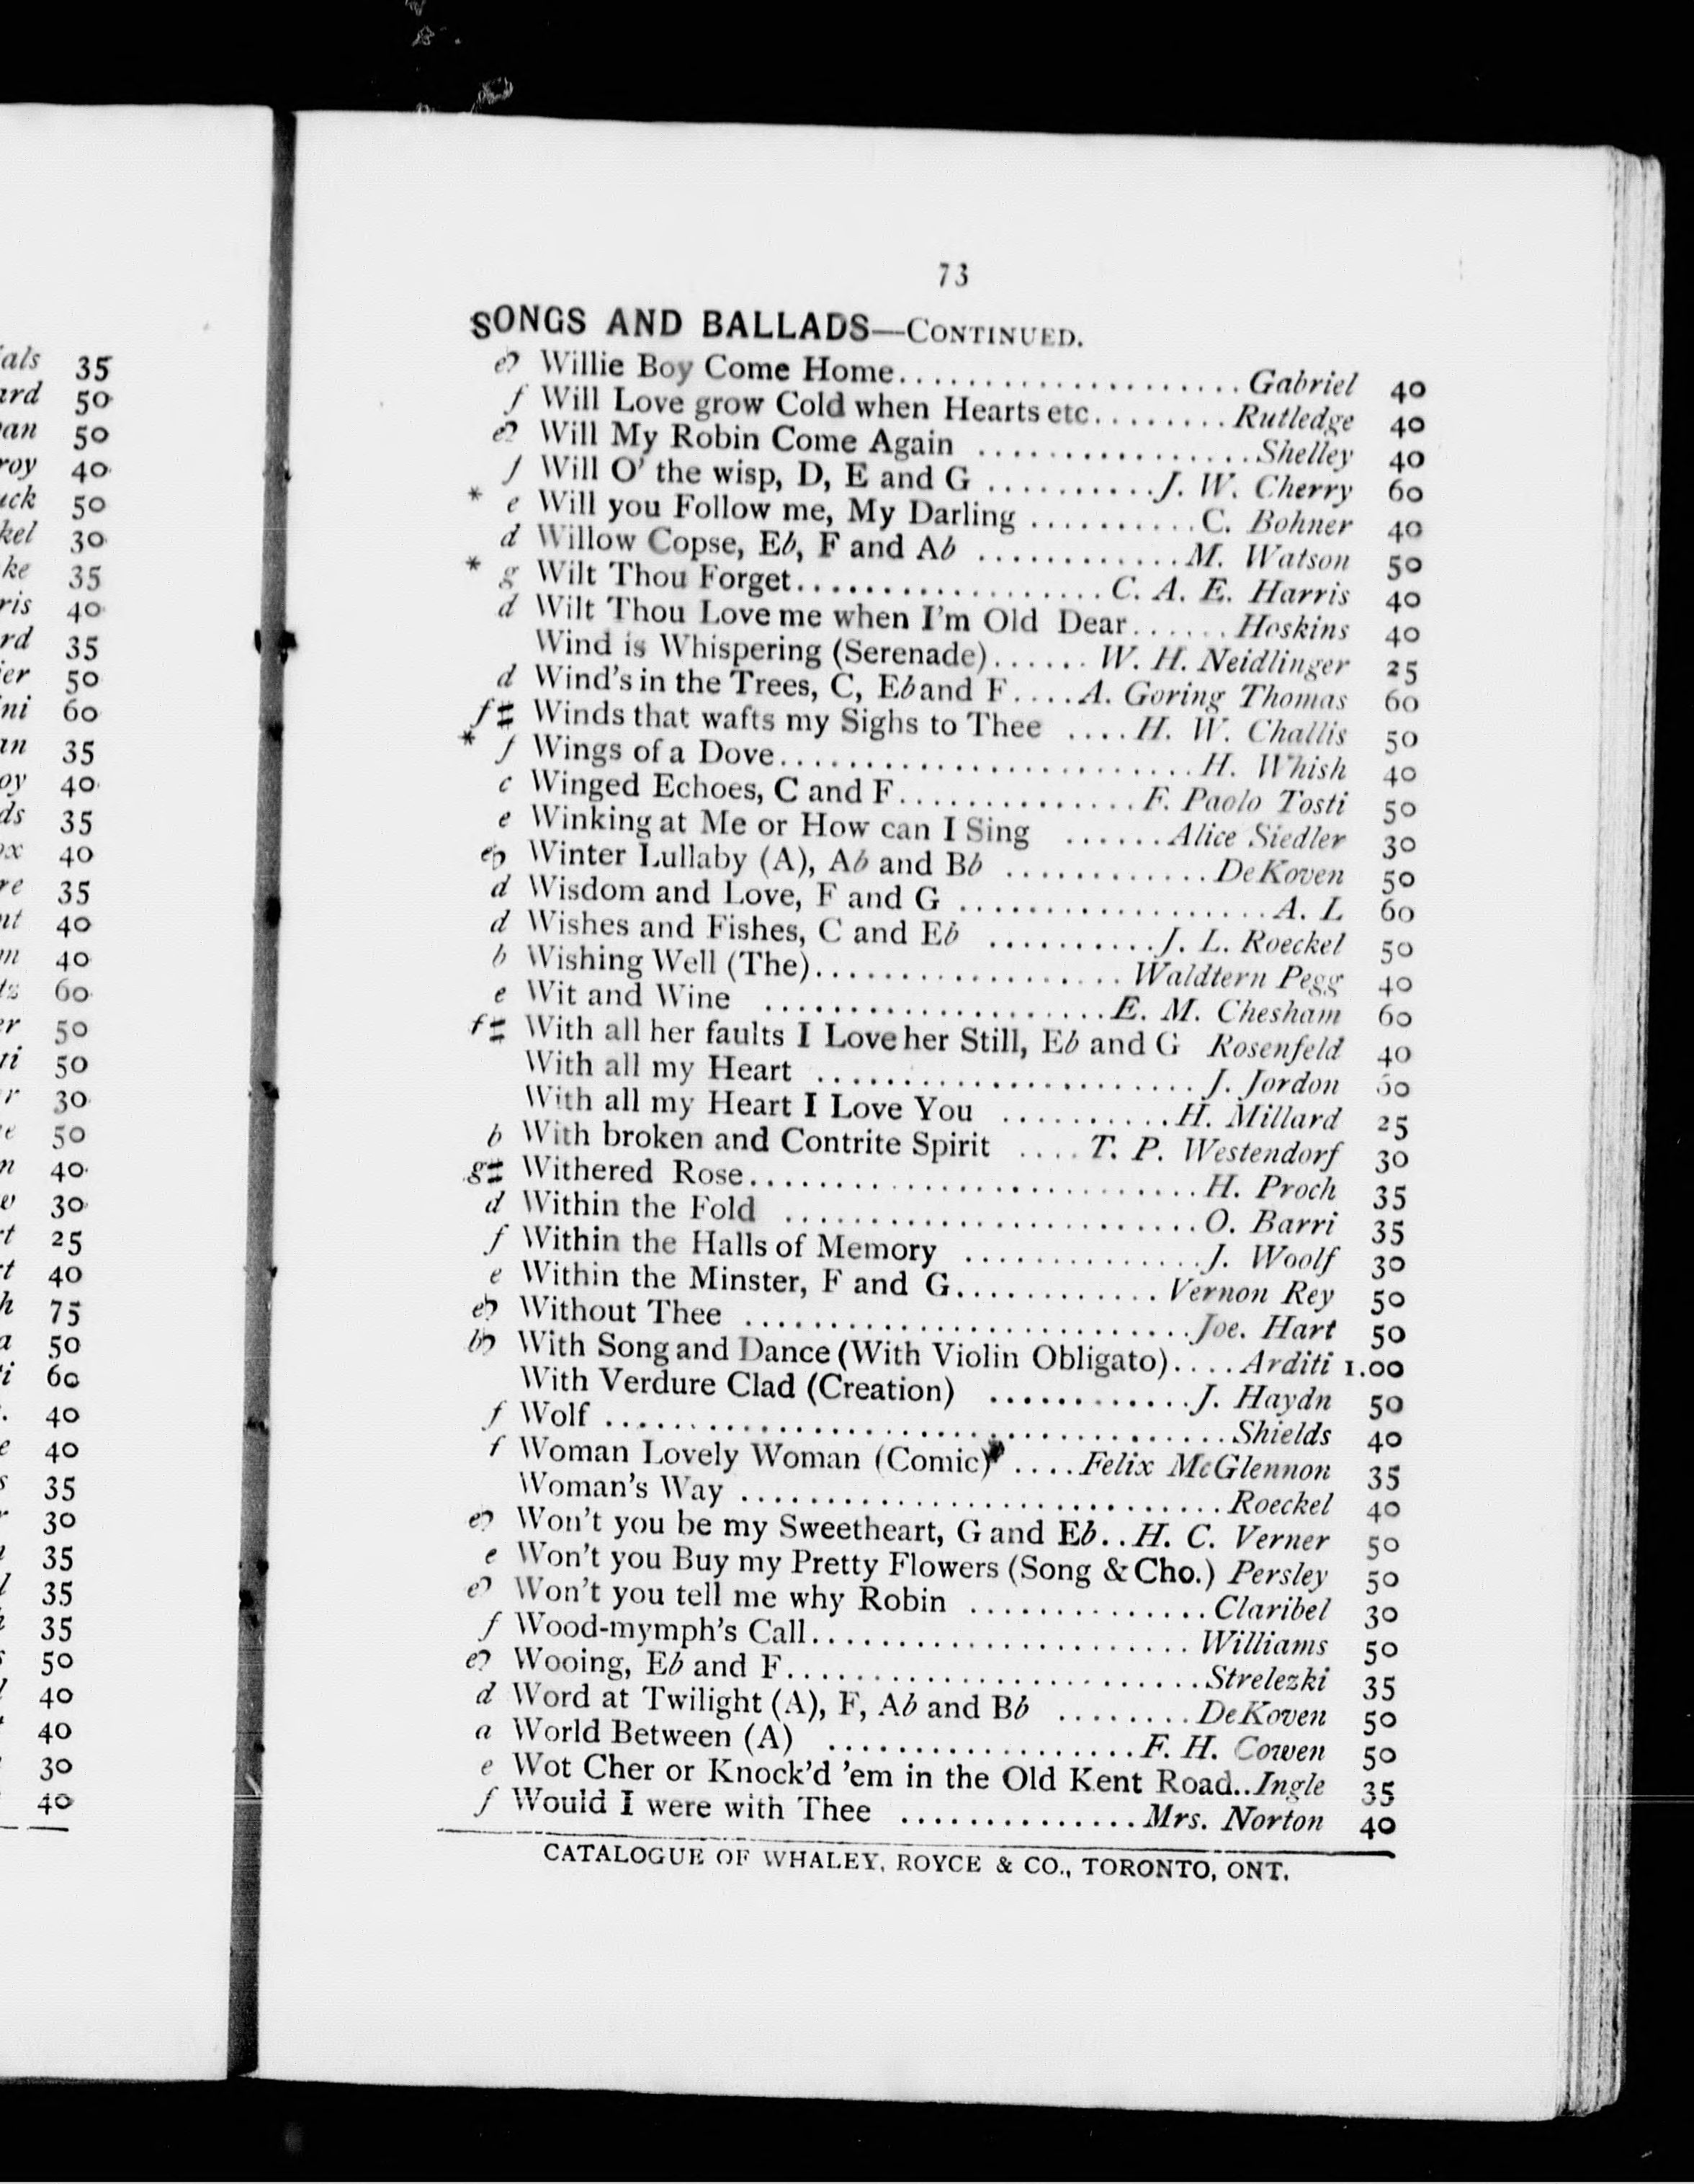 73
SONGS AND BALLADS—CONTINUED.
e♭ Willie Boy Come Home.................... Gabriel 40
f Will Love grow Cold when Hearts etc........ Rutledge 40
e♭ Will My Robin Come Again ................ Shelley 40
f Will O' the wisp, D, E and G .......... J. W. Cherry 60
* e Will you Follow me, My Darling .......... C. Bohner 40
d Willow Copse, Eb, F and Ab ............ M. Watson 50
* g Wilt Thou Forget.................. C. A. E. Harris 40
d Wilt Thou Love me when I'm Old Dear...... Hoskins 40
Wind is Whispering (Serenade)...... W. H. Neidlinger 25
d Wind's in the Trees, C, Eb and F.... A. Goring Thomas 60
f♯ Winds that wafts my Sighs to Thee .... H. W. Challis 50
* f Wings of a Dove........................ H. Whish 40
c Winged Echoes, C and F.............. F. Paolo Tosti 50
e Winking at Me or How can I Sing ...... Alice Siedler 30
e♭ Winter Lullaby (A), Ab and Bb ............ DeKoven 50
d Wisdom and Love, F and G .................. A. L 60
d Wishes and Fishes, C and Eb .......... J. L. Roeckel 50
b Wishing Well (The).................. Waldtern Pegg 40
e Wit and Wine .................... E. M. Chesham 60
f♯ With all her faults I Love her Still, Eb and G Rosenfeld 40
With all my Heart ...................... J. Jordon
With all my Heart I Love You .......... H. Millard 25
b With broken and Contrite Spirit .... T. P. Westendorf 30
g♯ Withered Rose.......................... H. Proch 35
d Within the Fold ........................ O. Barri 35
f Within the Halls of Memory .............. J. Woolf 30
e Within the Minster, F and G............ Vernon Rey 50
e♭ Without Thee .......................... Joe. Hart 50
b♭ With Song and Dance (With Violin Obligato).... Arditi 1.00
With Verdure Clad (Creation) ............ J. Haydn 50
f Wolf .................................... Shields 40
f Woman Lovely Woman (Comic) .... Felix McGlennon 35
Woman's Way ............................ Roeckel 40
e♭ Won't you be my Sweetheart, G and Eb.. H. C. Verner 50
e Won't you Buy my Pretty Flowers (Song & Cho.) Persley 50
e♭ Won't you tell me why Robin .............. Claribel 30
f Wood-mymph's Call...................... Williams 50
e♭ Wooing, Eb and F........................ Strelezki 35
d Word at Twilight (A), F, Ab and Bb ........ DeKoven 50
a World Between (A) .................. F. H. Cowen 50
e Wot Cher or Knock'd 'em in the Old Kent Road.. Ingle 35
f Would I were with Thee .............. Mrs. Norton 40
CATALOGUE OF WHALEY, ROYCE & CO., TORONTO, ONT.